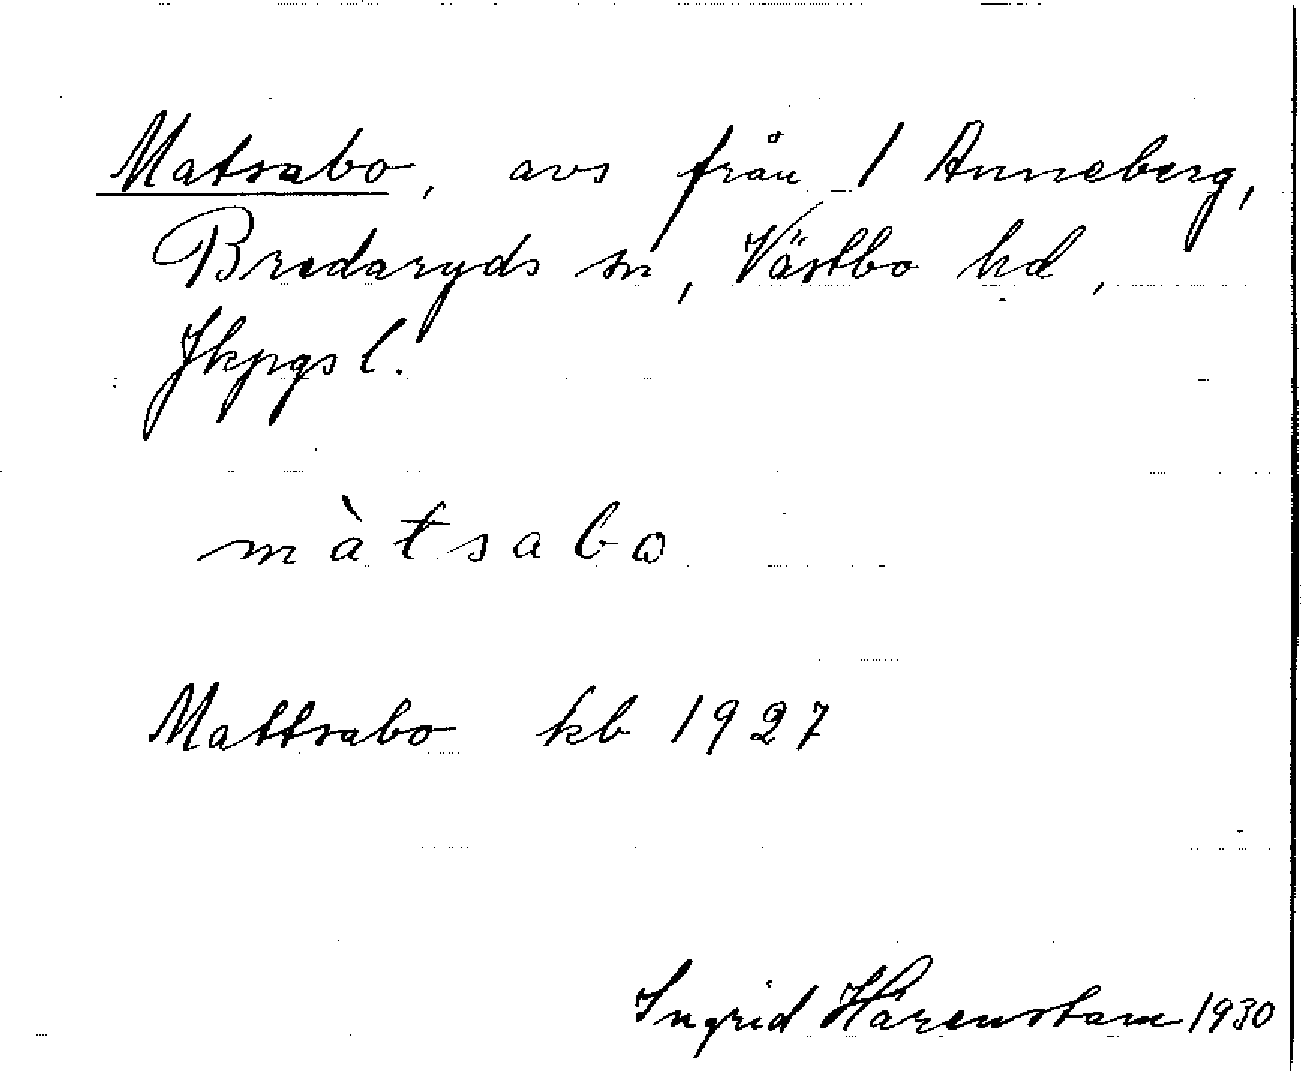 Matsabo, avs från 1 Anneberg,
Bredaryds sn, Västbo hd,
Jkpgs l.
màtsabo
Mattsabo kb 1927
Ingrid Härenstam 1930